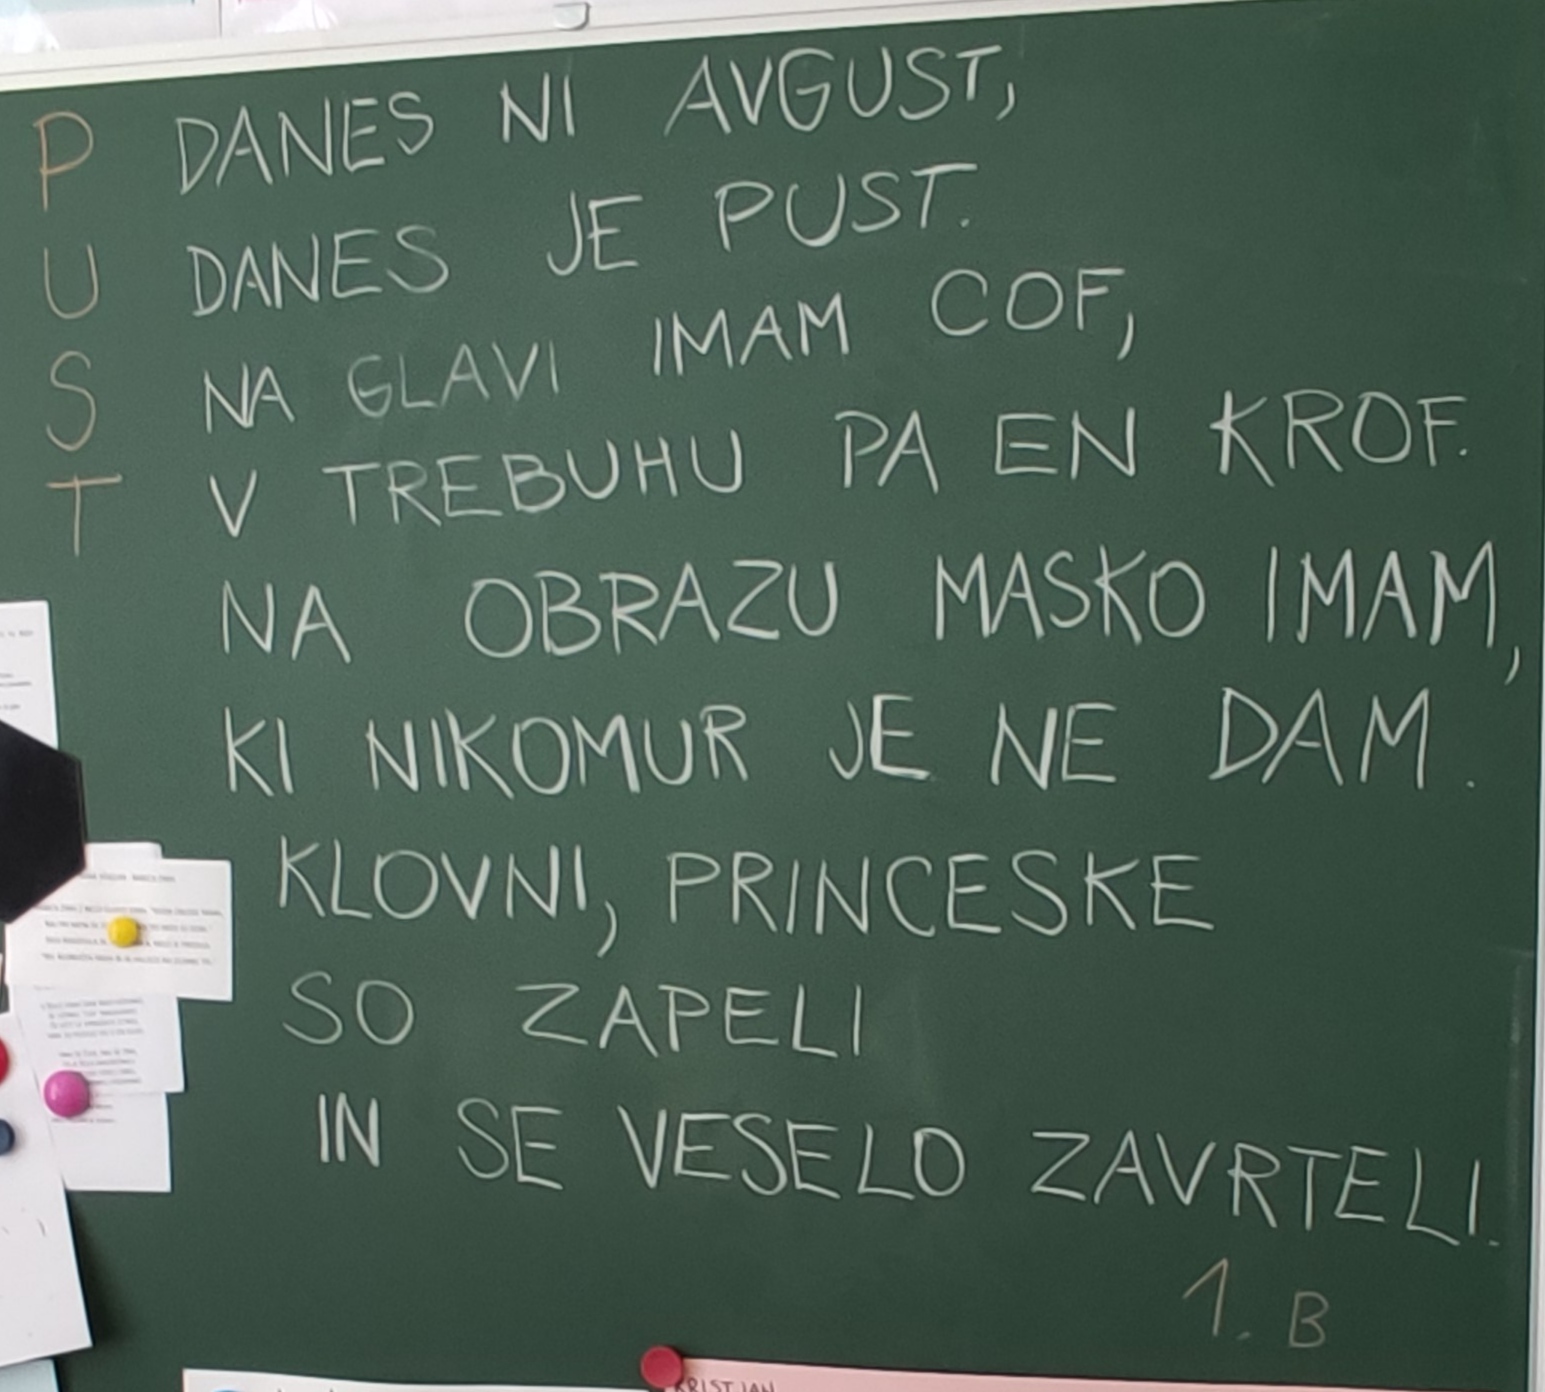 PUST
DANES NI AVGUST,
DANES JE PUST.
NA GLAVI IMAM COF,
V TREBUHU PA EN KROF.
NA OBRAZU MASKO IMAM,
KI NIKOMUR JE NE DAM.
KLOVNI, PRINCESKE
SO ZAPELI
IN SE VESELO ZAVRTELI.
1. B
KRISTJAN